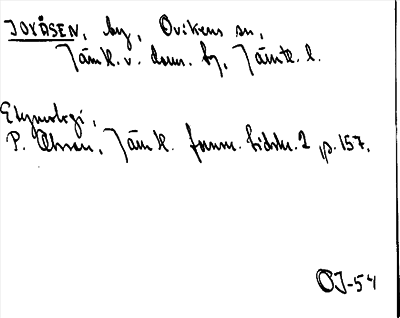 JOVÅSEN, by, Ovikens sn,
Jämtl. v. doms. bg, Jämtl. l.
Etymologi,
P. Olsson, Jämtl. fornm. tidskr. 2, p. 157.
OJ-54